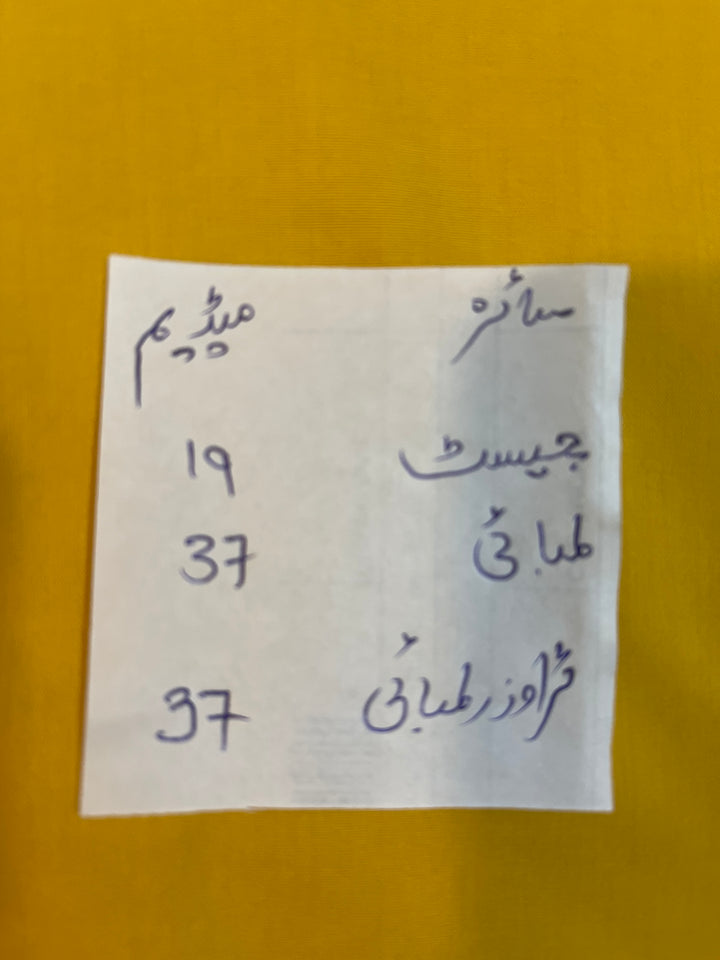 سائز میڈیم
چیسٹ 19
لمبائی 37
ٹراوذر لمبائی 37